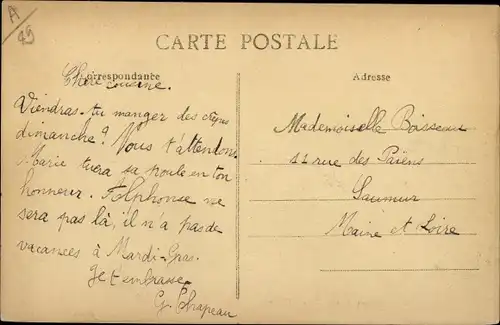 A
45
CARTE POSTALE
Correspondance
Adresse
Chère cousine.
Viendras-tu manger des crêpes
dimanche? Nous t'attendons
Marie tuera sa poule en ton
honneur. Alphonse ne
sera pas là, il n'a pas de
vacances à Mardi-Gras.
Je t'embrasse
G. Chapeau
Mademoiselle Boisseau
11 rue des Païens
Saumur
Maine et Loire